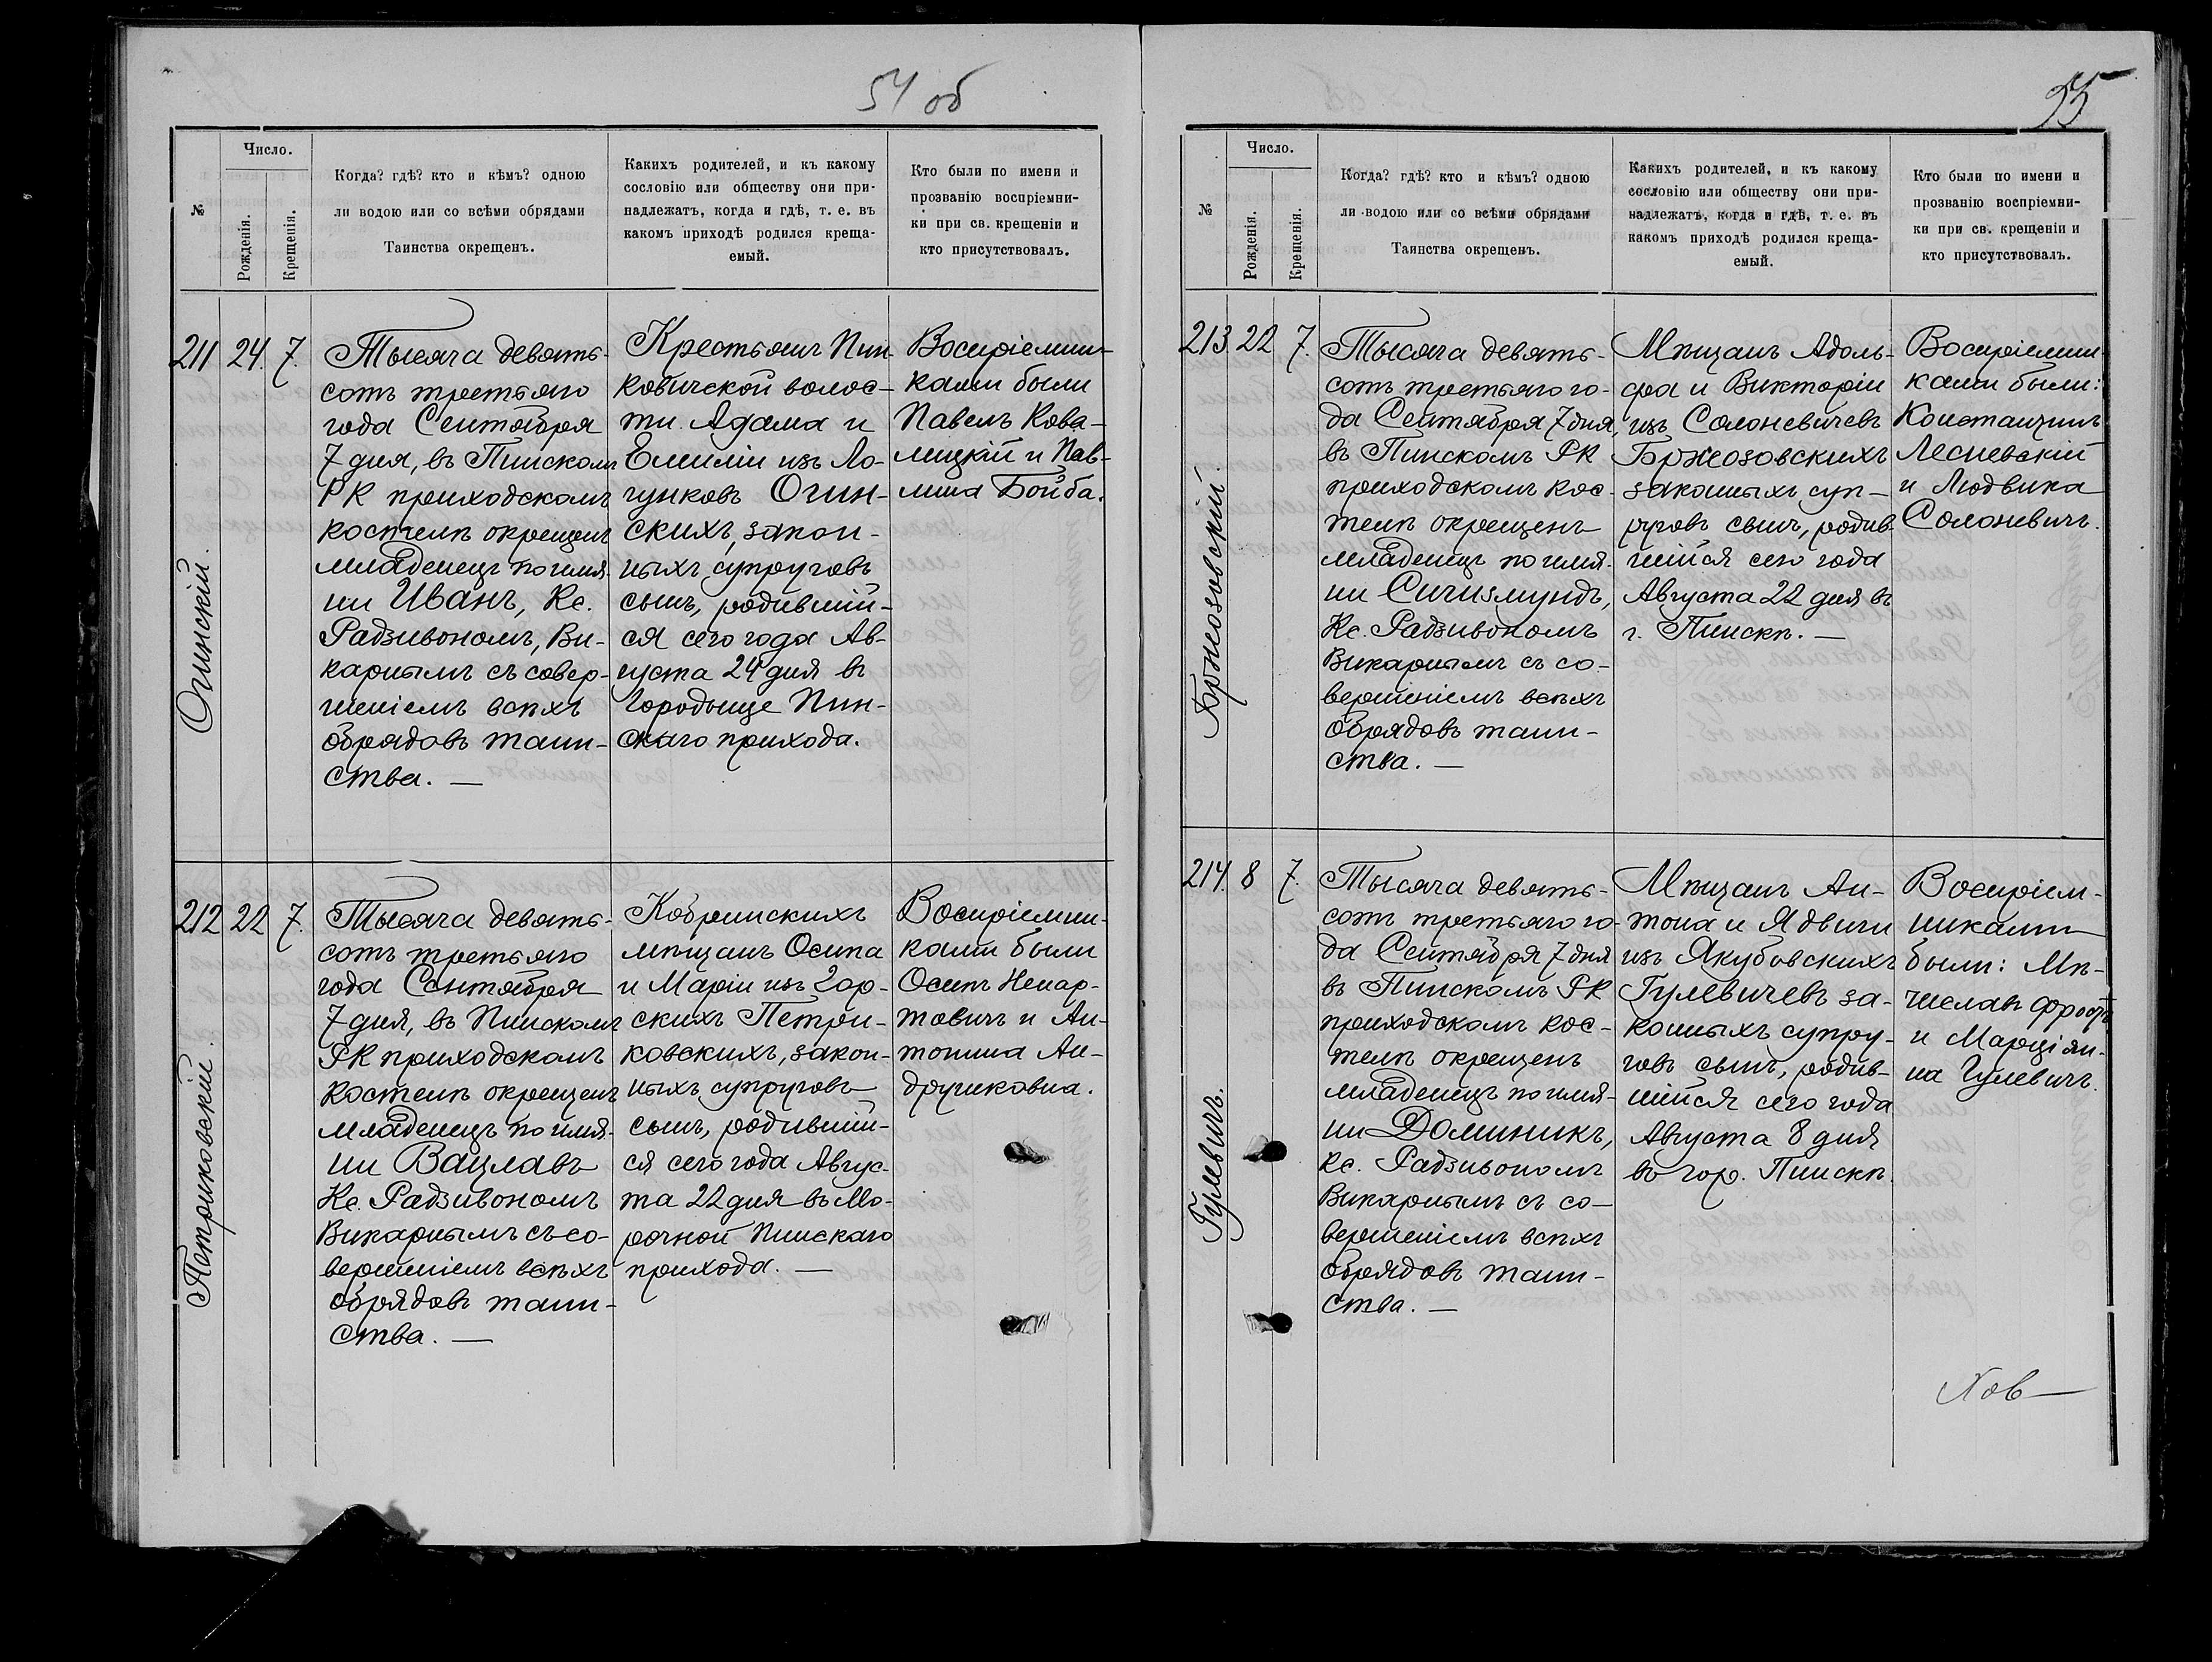 54 об
№
Число.
Рожденія.
Крещенія.
Когда? гдѣ? кто и кѣмъ? одною
ли водою или со всѣми обрядами
Таинства окрещенъ.
Какихъ родителей, и къ какому
сословію или обществу они при-
надлежатъ, когда и гдѣ, т. е. въ
какомъ приходѣ родился креща-
емый.
Кто были по имени и
прозванію воспріемни-
ки при св. крещеніи и
кто присутствовалъ.
211
Огинскій.
24.
7.
Тысяча девять-
сотъ третьяго
года Сентября
7 дня, въ Пинскомъ
РК приходскомъ
костелѣ окрещенъ
младенецъ по имя-
ни Иванъ, Кс.
Радзивономъ, Ви-
карнымъ съ совер-
шеніемъ всѣхъ
обрядовъ таин-
ства. —
Крестьянъ Пин-
ковичской волос-
ти Адама и
Емиліи изъ Ло-
гунковъ Огин-
скихъ, закон-
ныхъ супруговъ
сынъ, родившій-
ся сего года Ав-
густа 24 дня въ
Городыще Пин-
скаго прихода.
Воспріемни-
ками были
Павелъ Кова-
лицкій и Пав-
лина Бойба.
212
Петриковскій.
22
7.
Тысяча девять-
сотъ третьяго
года Сентября
7 дня, въ Пинскомъ
РК приходскомъ
костелѣ окрещенъ
младенецъ по имя-
ни Вацлавъ
Кс. Радзивономъ
Викарнымъ съ со-
вершеніемъ всѣхъ
обрядовъ таин-
ства. —
Кобринскихъ
мѣщанъ Осипа
и Маріи изъ Зор-
скихъ Петри-
ковскихъ, закон-
ныхъ супруговъ
сынъ, родившій-
ся сего года Авгус-
та 22 дня въ Мо-
рочной Пинскаго
прихода. —
Воспріемни-
ками были
Осипъ Ненар-
товичъ и Ан-
тонина Ан-
друшковна.
55
№
Число.
Рожденія.
Крещенія.
Когда? гдѣ? кто и кѣмъ? одною
ли водою или со всѣми обрядами
Таинства окрещенъ.
Какихъ родителей, и къ какому
сословію или обществу они при-
надлежатъ, когда и гдѣ, т. е. въ
какомъ приходѣ родился креща-
емый.
Кто были по имени и
прозванію воспріемни-
ки при св. крещеніи и
кто присутствовалъ.
213
Бржозовскій.
22
7.
Тысяча девять-
сотъ третьяго го-
да Сентября 7 дня,
въ Пинскомъ РК
приходскомъ кос-
телѣ окрещенъ
младенецъ по имя-
ни Сигизмундъ,
Кс. Радзивономъ
Викарнымъ съ со-
вершеніемъ всѣхъ
обрядовъ таин-
ства. —
Мѣщанъ Адоль-
фа и Викторіи
изъ Солоневичевъ
Бржозовскихъ
законныхъ суп-
руговъ сынъ, родив-
шійся сего года
Августа 22 дня въ
г. Пинскѣ. —
Воспріемни-
ками были:
Константинъ
Лесневскій
и Людвика
Солоневичъ.
214.
Гулевичъ.
8
7.
Тысяча девять-
сотъ третьяго го-
да Сентября 7 дня
въ Пинскомъ РК
приходскомъ кос-
телѣ окрещенъ
младенецъ по имя-
ни Доминикъ,
Кс. Радзивономъ
Викарнымъ съ со-
вершеніемъ всѣхъ
обрядовъ таин-
ства. —
Мѣщанъ Ан-
тона и Ядвиги
изъ Якубовскихъ
Гулевичевъ за-
конныхъ супру-
говъ сынъ, родив-
шійся сего года
Августа 8 дня
въ гор. Пинскѣ.
Воспріем-
никами
были: Мѣ-
числавъ
и Марціян-
на Гулевичъ.